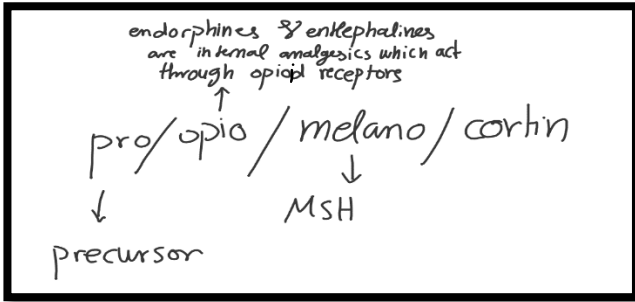 endorphines & enkephalines
are internal analgesics which act
through opioid receptors
pro/opio/melano/cortin
MSH
precursor